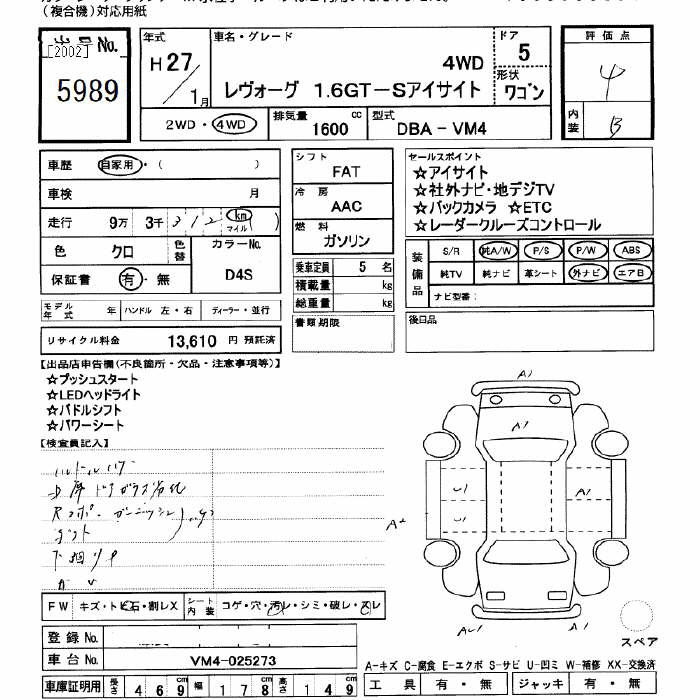 (複合機)対応用紙
出品 No.
[2002]
5989
年式
H27/1月
車名・グレード
4WD
レヴォーグ 1.6GT-Sアイサイト
ドア
5
形状
ワゴン
評価点
4
内装
B
2WD・4WD
排気量
1600 cc
型式
DBA-VM4
車歴 自家用・( )
車検 月
走行 9万 3千312 km マイル ( )
色 クロ 色替
カラーNo.
D4S
保証書 有・無
シフト
FAT
冷房
AAC
燃料
ガソリン
乗車定員 5 名
積載量 kg
総重量 kg
書類期限
セールスポイント
☆アイサイト
☆社外ナビ・地デジTV
☆バックカメラ ☆ETC
☆レーダークルーズコントロール
装備品
S/R 純A/W P/S P/W ABS
純TV 純ナビ 革シート 外ナビ エアB
ナビ型番:
後日品
モデル年式 年 ハンドル 左・右 ディーラー・並行
リサイクル料金 13,610 円 預託済
【出品店申告欄(不良箇所・欠品・注意事項等)】
☆プッシュスタート
☆LEDヘッドライト
☆パドルシフト
☆パワーシート
【検査員記入】
ハンドルハゲ
下廻りサ
A1
A1
A1
A2
A1
FW キズ・トビ石・割レX
シート内装 コゲ・穴・汚レ・シミ・破レ・スレ
スペア
登録 No.
車台 No. VM4-025273
A-キズ C-腐食 E-エクボ S-サビ U-凹ミ W-補修 XX-交換済
車庫証明用 長さ 469 cm 幅 178 cm 高さ 149 cm
工具 有・無 ジャッキ 有・無